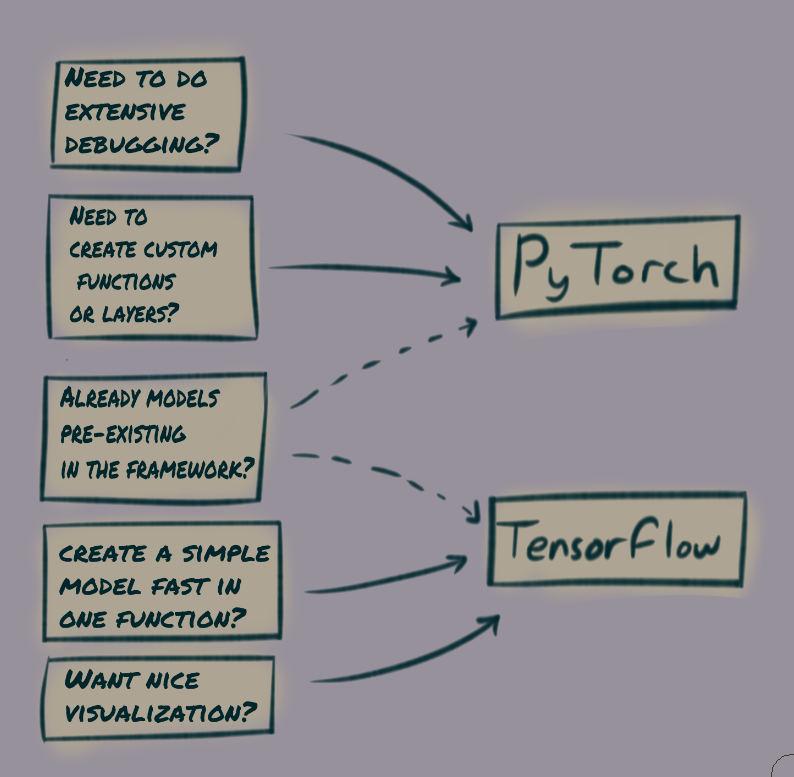 NEED TO DO
EXTENSIVE
DEBUGGING?
NEED TO
CREATE CUSTOM
FUNCTIONS
OR LAYERS?
ALREADY MODELS
PRE-EXISTING
IN THE FRAMEWORK?
CREATE A SIMPLE
MODEL FAST IN
ONE FUNCTION?
WANT NICE
VISUALIZATION?
PyTorch
TensorFlow